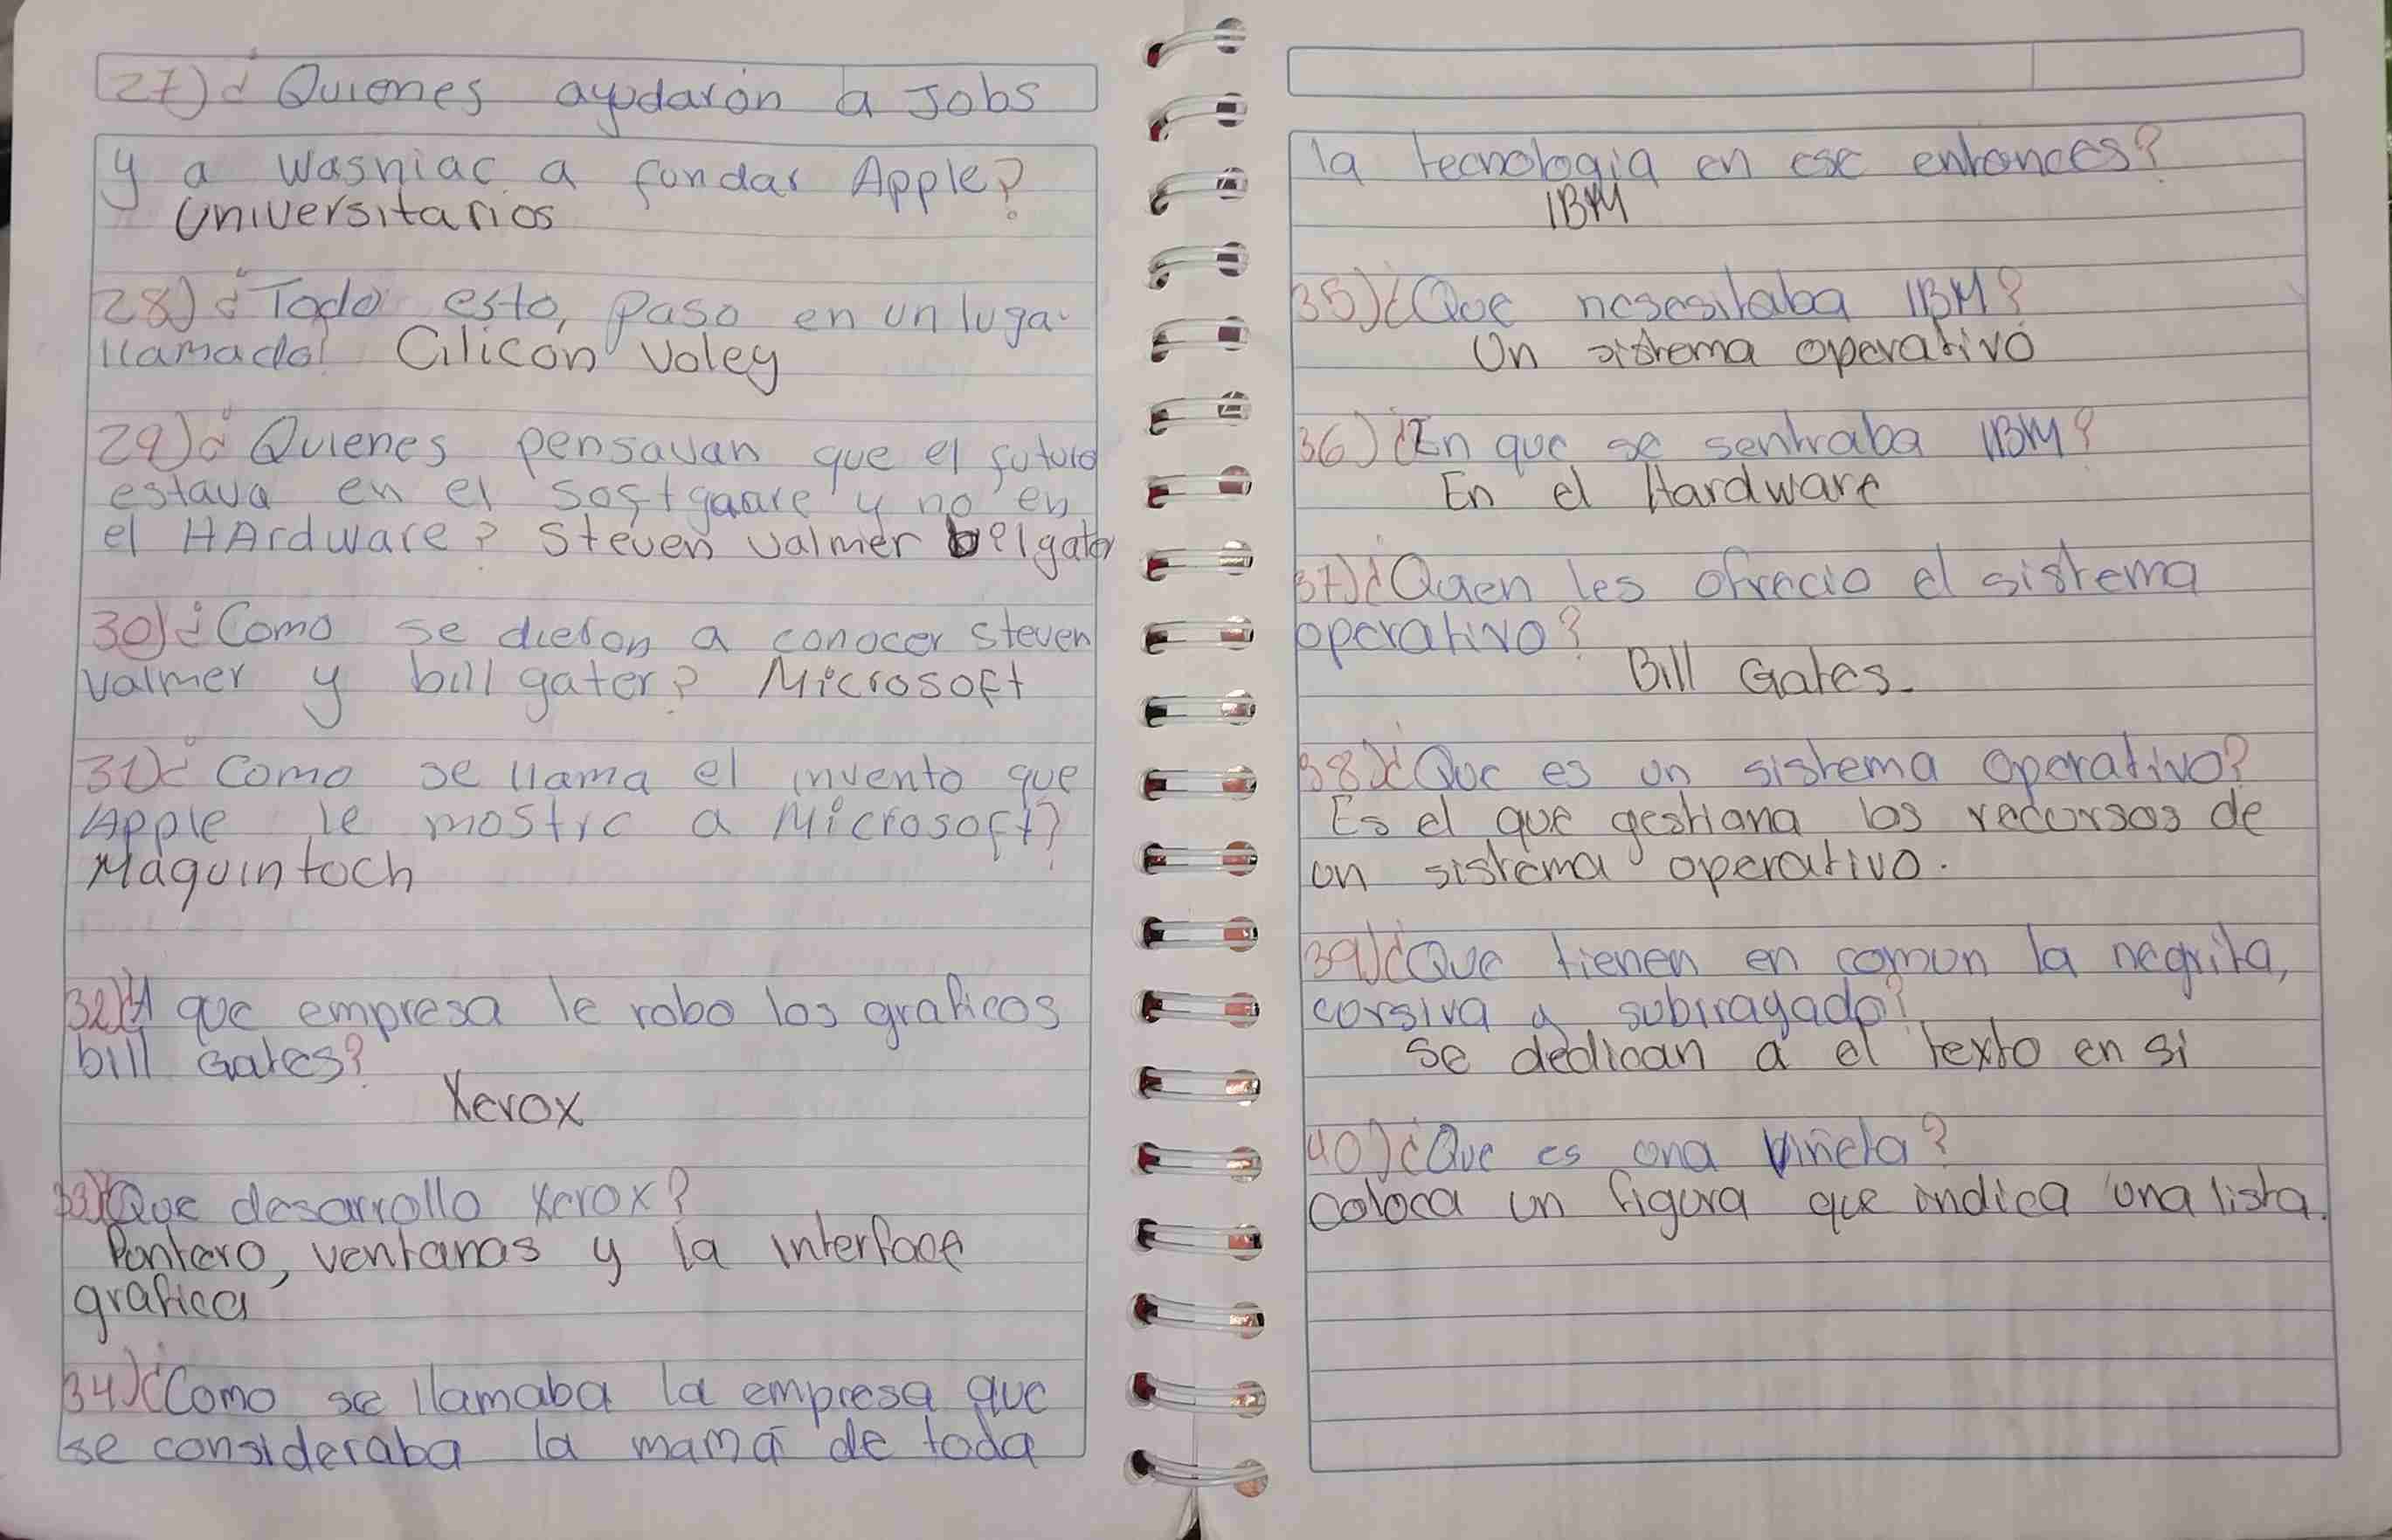 27) ¿Quienes ayudarón a Jobs
y a Wasniac a fundar Apple?
Universitarios
28) ¿Todo esto, paso en un lugar
llamado? Cilicon Voley
29) ¿Quienes pensavan que el futuro
estava en el sostgaare y no en
el HArdware? Steven valmer belgater
30) ¿Como se dieron a conocer steven
valmer y bill gater? Microsoft
31) ¿Como se llama el invento que
Apple le mostro a Microsoft?
Maquintoch
32) ¿A que empresa le robo los graficos
bill Gates?
Xerox
33) ¿Que desarrollo xerox?
Puntero, ventanas y la interface
grafica
34) ¿Como se llamaba la empresa que
se consideraba la mamá de toda
la tecnologia en ese entonces?
IBM
35) ¿Que nesesitaba IBM?
Un sistema operativo
36) ¿En que se sentraba IBM?
En el Hardware
37) ¿Quien les ofrecio el sistema
operativo?
Bill Gates.
38) ¿Que es un sistema operativo?
Es el que gestiona los recursos de
un sistema operativo.
39) ¿Que tienen en comun la negrita,
corsiva y subrrayado?
Se dedican a el texto en si
40) ¿Que es una viñeta?
Coloca un figura que indica una lista.